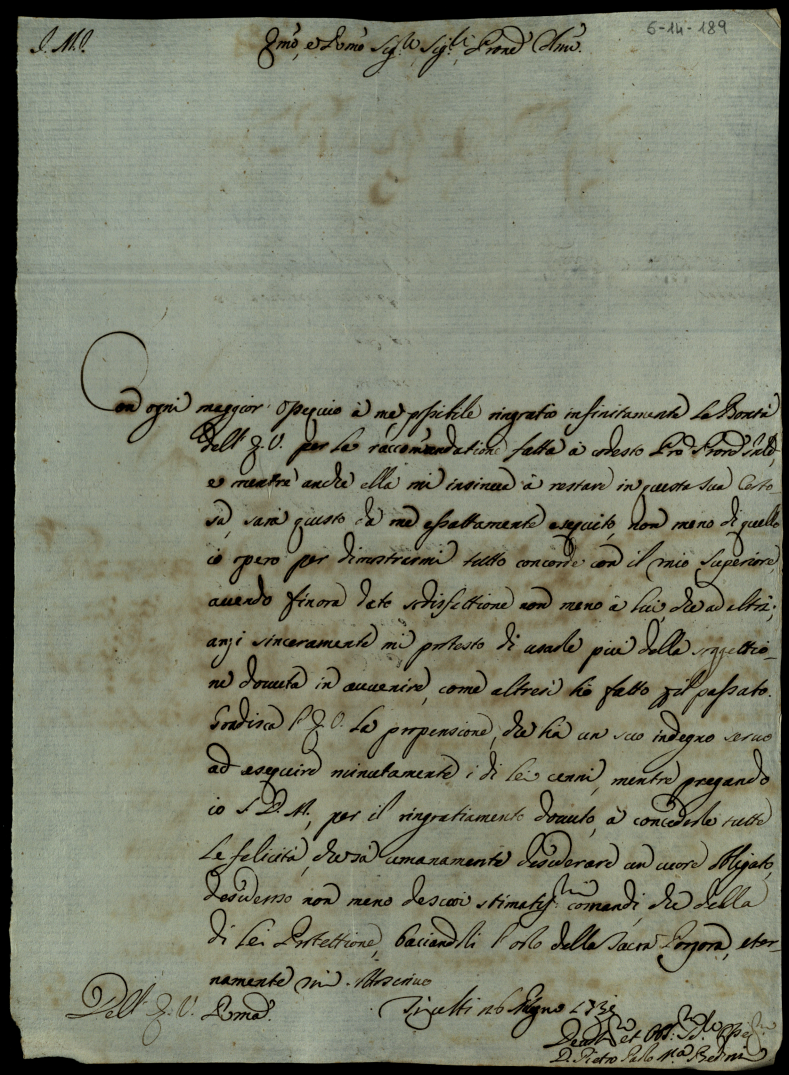 6-14-189
J. M. J.
Emo, e Rmo Sig.re Sig.r Prone Clmo.
Con ogni maggior ossequio à me possibile ringratio infinitamente la Bontà
dell' E. V. per la raccomandatione fatta à codesto Pro
e mentre anche ella mi insinua à restare in questa sua Certo-
sa, sarà questo da me essattamente eseguito, non meno di quello
io opero per dimostrarmi tutto concorde con il mio Superiore,
avendo finora dato sodisfettione non meno à lui, che ad altri;
anzi sinceramente mi protesto di usarle più della soggettio-
ne dovuta in avvenire, come altresi hò fatto p il passato.
Gradisca l' E. V. la propensione, che hà un suo indegno servo
ad eseguire minutamente i di Lei cenni, mentre pregando
io S. D. M., per il ringratiamento dovuto, à concederle tutte
le felicità, che sà umanamente desiderare un cuore obligato,
desideroso non meno de suoi stimatiss.mi comandi, che della
di Lei Protettione, baciandoli l' orlo della Sacra Porpora, eter-
namente mi
Dell' E. V. Rma.
Trisulti 26 Giugno
D. Pietro Paolo M.a